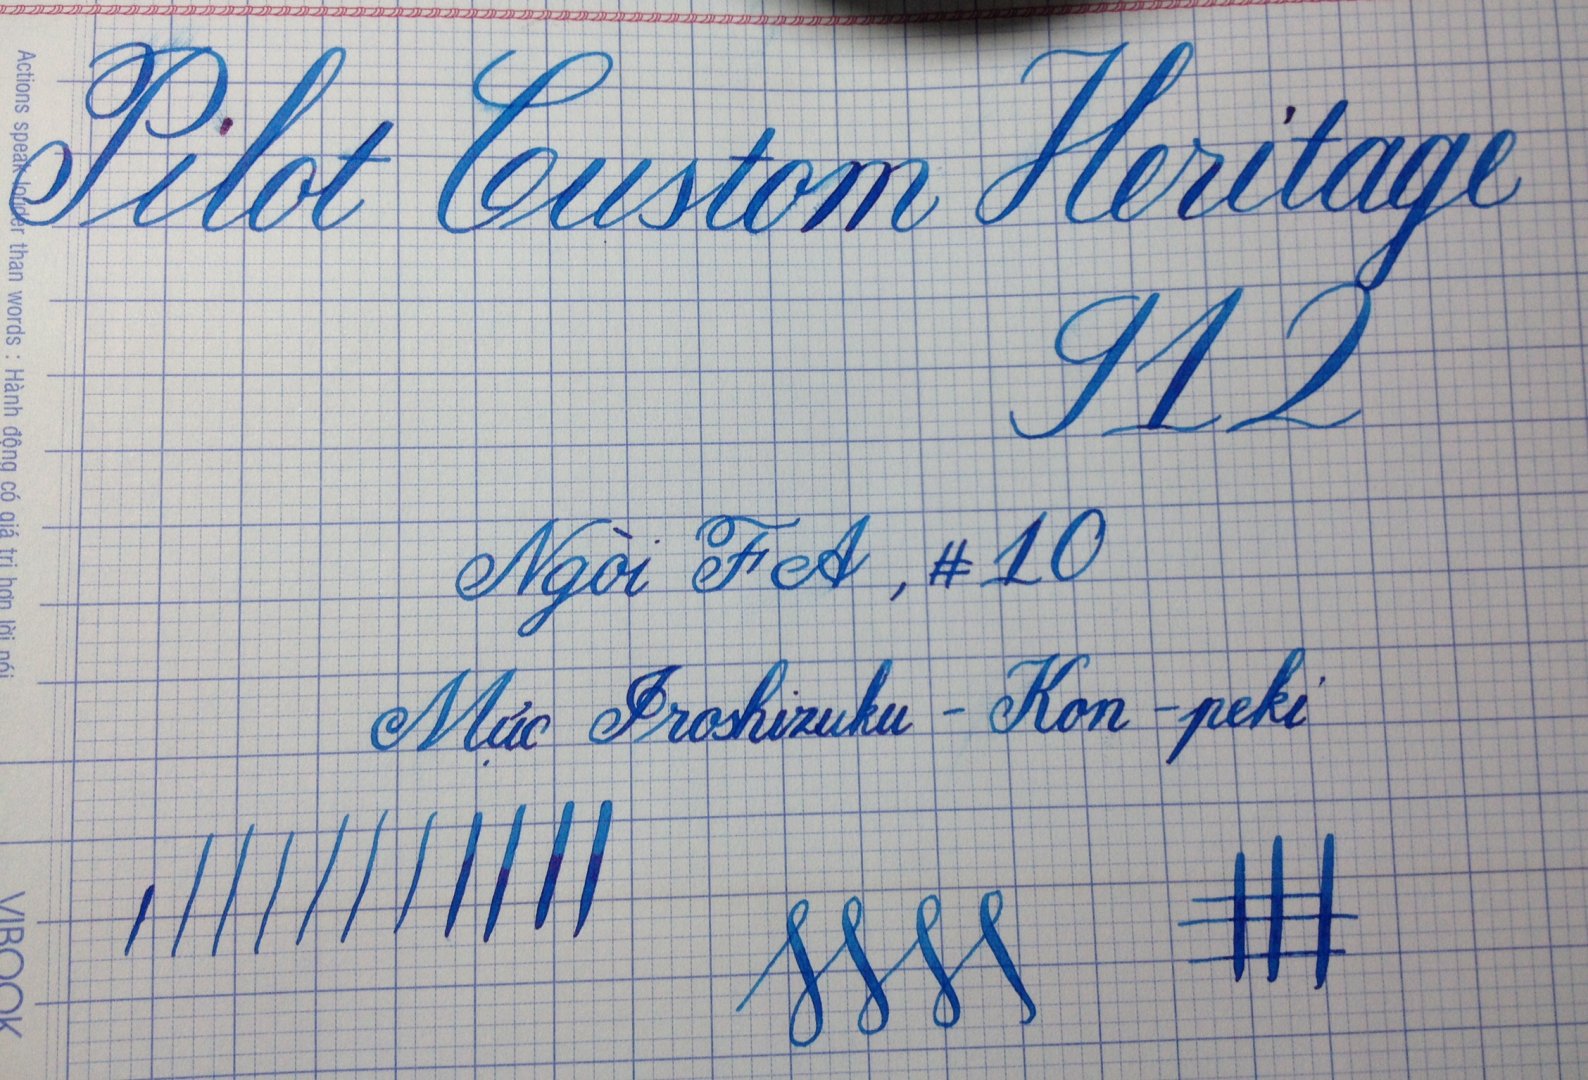 Pilot Custom Heritage
912
Ngòi FA, #10
Mực Iroshizuku - Kon - peki
Actions speak louder than words : Hành động có giá trị hơn lời nói
VIBOOK